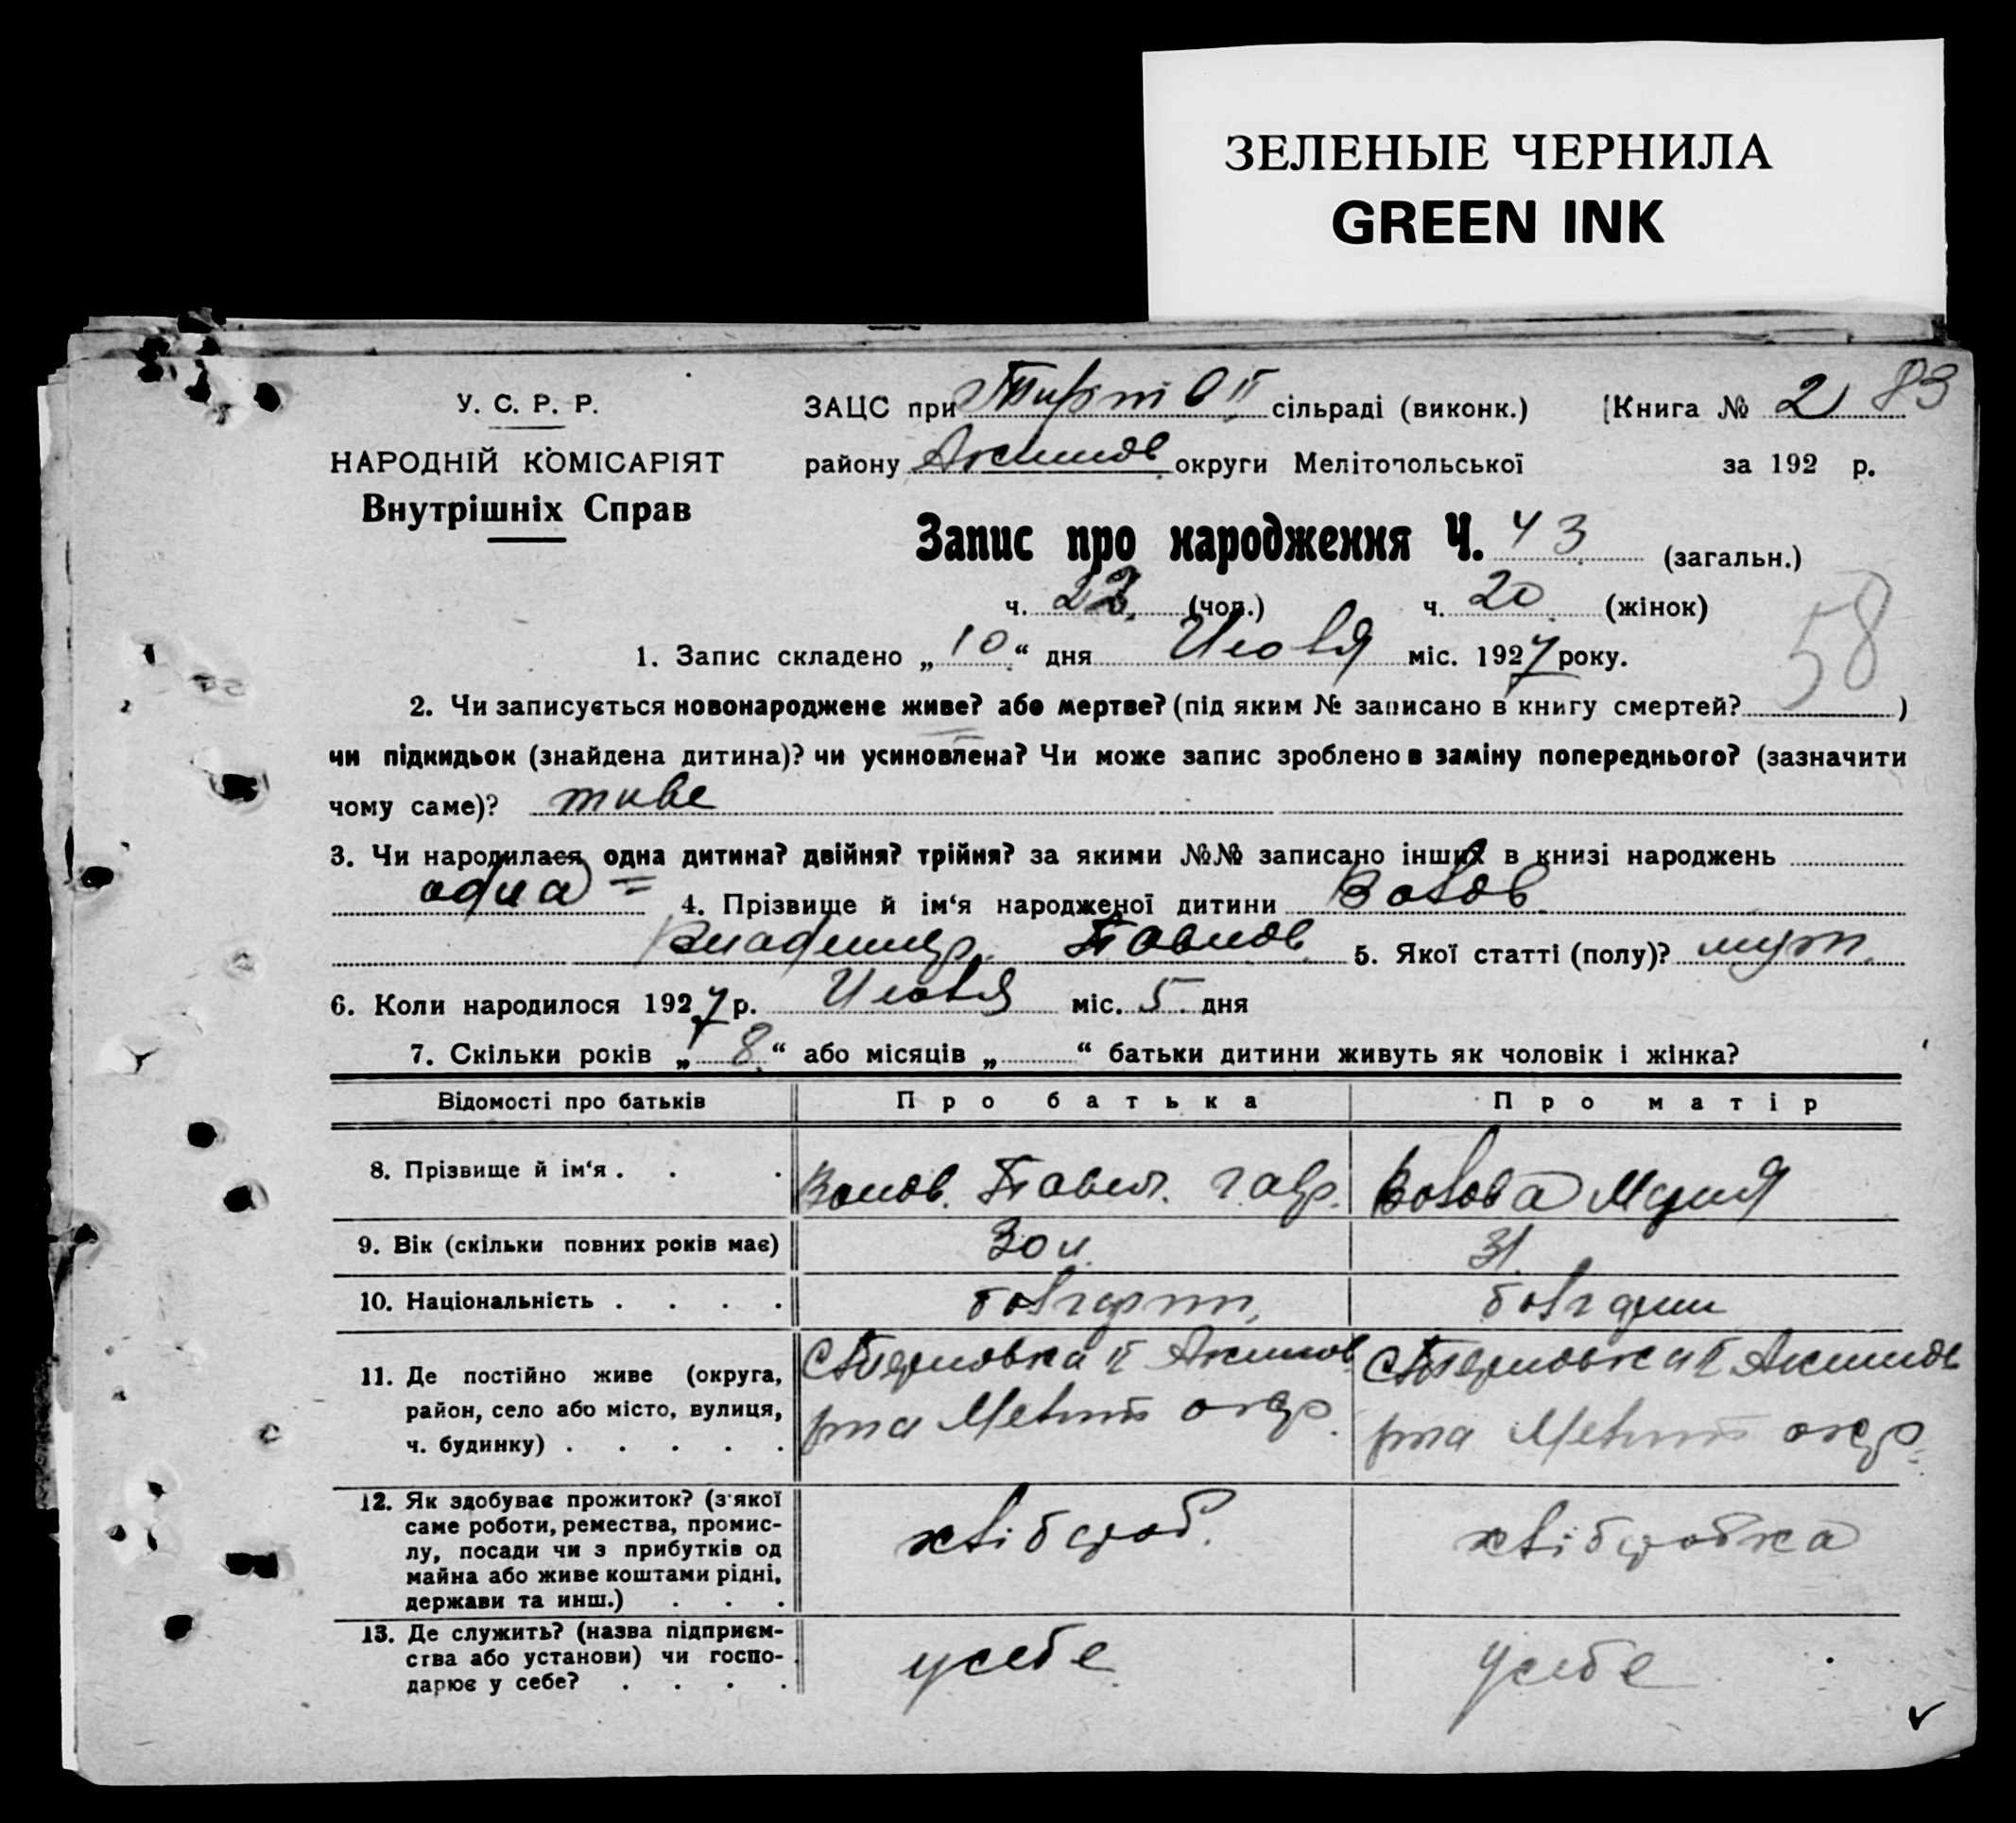 ЗЕЛЕНЫЕ ЧЕРНИЛА
GREEN INK
У. С. Р. Р.
НАРОДНІЙ КОМІСАРІЯТ
Внутрішніх Справ
ЗАЦС при сільраді (виконк.) Книга № 2 83
району Акимов округи Мелітопольської за 192 р.
Запис про народження Ч. 43 (загальн.)
ч. 23 (чол.) ч. 20 (жінок)
58
1. Запис складено „ 10 “ дня Июля міс. 1927 року.
2. Чи записується новонароджене живе? або мертве? (під яким № записано в книгу смертей? )
чи підкидьок (знайдена дитина)? чи усиновлена? Чи може запис зроблено в заміну попереднього? (зазначити
чому саме)? живе
3. Чи народилася одна дитина? двійня? трійня? за якими №№ записано інших в книзі народжень
одна 4. Прізвище й ім‘я народженої дитини Волов
Владимир Павлов 5. Якої статті (полу)? муж.
6. Коли народилося 1927 р. Июля міс. 5 дня
7. Скільки років „ 8 “ або місяців „ “ батьки дитини живуть як чоловік і жінка?
Відомості про батьків Про батька Про матір
8. Прізвище й ім‘я . . . Волов Павел Гавр. Волова Мария
9. Вік (скільки повних років має) 30 л 31
10. Національність . . . . болгарин болгарин
11. Де постійно живе (округа,
район, село або місто, вулиця,
ч. будинку) . . . . .
ІІ Акимов
р-на Мелит окр.
ІІ Акимов
р-на Мелит окр.
12. Як здобуває прожиток? (з якої
саме роботи, ремества, промис-
лу, посади чи з прибутків од
майна або живе коштами рідні,
держави та инш.) . . .
хлібороб. хліборобка
13. Де служить? (назва підприєм-
ства або установи) чи госпо-
дарює у себе? . . . .
у себе у себе